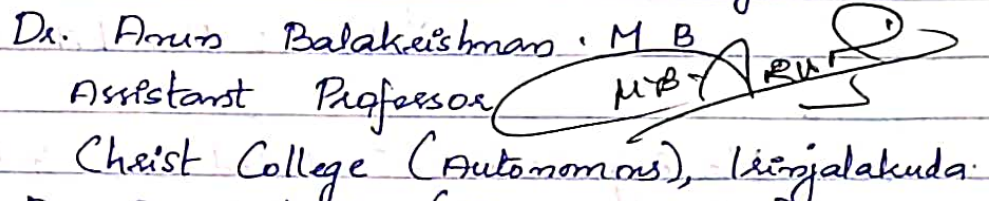 Dr. Arun Balakrishnan. M B
Assistant Professor
Christ College (Autonomous), Irinjalakuda.